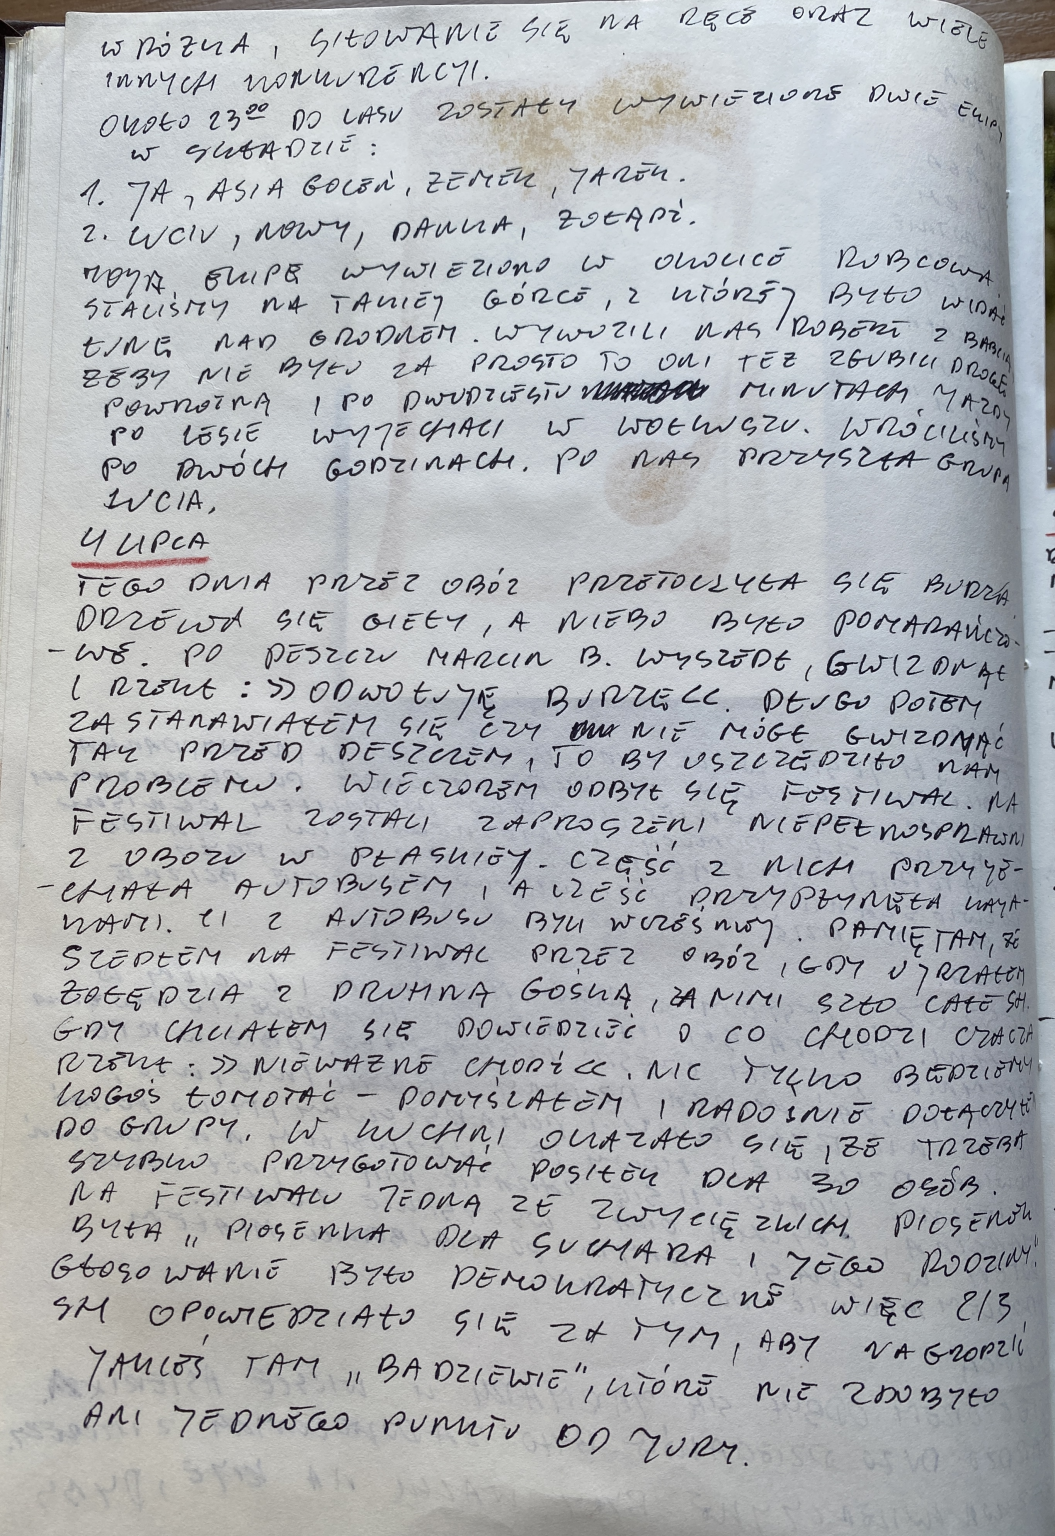 WRÓŻKA, SIŁOWANIE SIĘ NA RĘCE ORAZ WIELE
INNYCH KONKURENCYI.
OKOŁO 23⁰⁰ DO LASU ZOSTAŁY WYWIEZIONE DWIE EKIPY
W SKŁADZIE:
1. JA, ASIA GOLEŃ, ZEMEK, JAREK.
2. LUCIU, NOWY, DANKA, ŻOŁĄDŹ.
MOJĄ EKIPĘ WYWIEZIONO W OKOLICE RUBCOWA.
STALIŚMY NA TAKIEJ GÓRCE, Z KTÓREJ BYŁO WIDAĆ
ŁUNĘ NAD GRODNEM. WYWOZILI NAS ROBERT Z BABCIĄ
ŻEBY NIE BYŁO ZA PROSTO TO ONI TEŻ ZGUBILI DROGĘ
POWROTNĄ I PO DWUDZIESTU MINUTACH JAZDY
PO LESIE WYJECHALI W WOŁKUSZU. WRÓCILIŚMY
PO DWÓCH GODZINACH. PO NAS PRZYSZŁA GRUPA
LUCIA.
4 LIPCA
TEGO DNIA PRZEZ OBÓZ PRZETOCZYŁA SIĘ BURZA.
DRZEWA SIĘ GIEŁY, A NIEBO BYŁO POMARAŃCZO-
-WE. PO DESZCZU MARCIN B. WYSZEDŁ, GWIZDNĄŁ
I RZEKŁ: >> ODWOŁUJĘ BURZĘ <<. DŁUGO POTEM
ZASTANAWIAŁEM SIĘ CZY NIE MÓGŁ GWIZDNĄĆ
TAK PRZED DESZCZEM, TO BY USZCZĘDZIŁO NAM
PROBLEMU. WIECZOREM ODBYŁ SIĘ FESTIWAL. NA
FESTIWAL ZOSTALI ZAPROSZENI NIEPEŁNOSPRAWNI
Z OBOZU W PŁASKIEJ. CZĘŚĆ Z NICH PRZYJE-
-CHAŁA AUTOBUSEM, A CZEŚĆ PRZYPŁYNĘŁA KAJA-
KAMI. CI Z AUTOBUSU BYLI WCZEŚNIEJ. PAMIĘTAM, ŻE
SZEDŁEM NA FESTIWAL PRZEZ OBÓZ, GDY UJRZAŁEM
ŻOŁĘDZIA Z DRUHNĄ GOŚKĄ, ZA NIMI SZŁO CAŁE SM.
GDY CHCIAŁEM SIĘ DOWIEDZIEĆ O CO CHODZI CZACZA
RZEKŁ: >> NIEWAŻNE CHODŹ <<. NIC TYLKO BĘDZIEMY
KOGOŚ ŁOMOTAĆ – POMYŚLAŁEM I RADOŚNIE DOŁĄCZYŁEM
DO GRUPY. W KUCHNI OKAZAŁO SIĘ, ŻE TRZEBA
SZYBKO PRZYGOTOWAĆ POSIŁEK DLA 30 OSÓB.
NA FESTIWALU JEDNĄ ZE ZWYCIĘZKICH PIOSENEK
BYŁA „PIOSENKA DLA SUCHARA I JEGO RODZINY".
GŁOSOWANIE BYŁO DEMOKRATYCZNE WIĘC 2/3
SM OPOWIEDZIAŁO SIĘ ZA TYM, ABY NAGRODZIĆ
JAKIEŚ TAM „BADZIEWIE", KTÓRE NIE ZDOBYŁO
ANI JEDNEGO PUNKTU OD JURY.